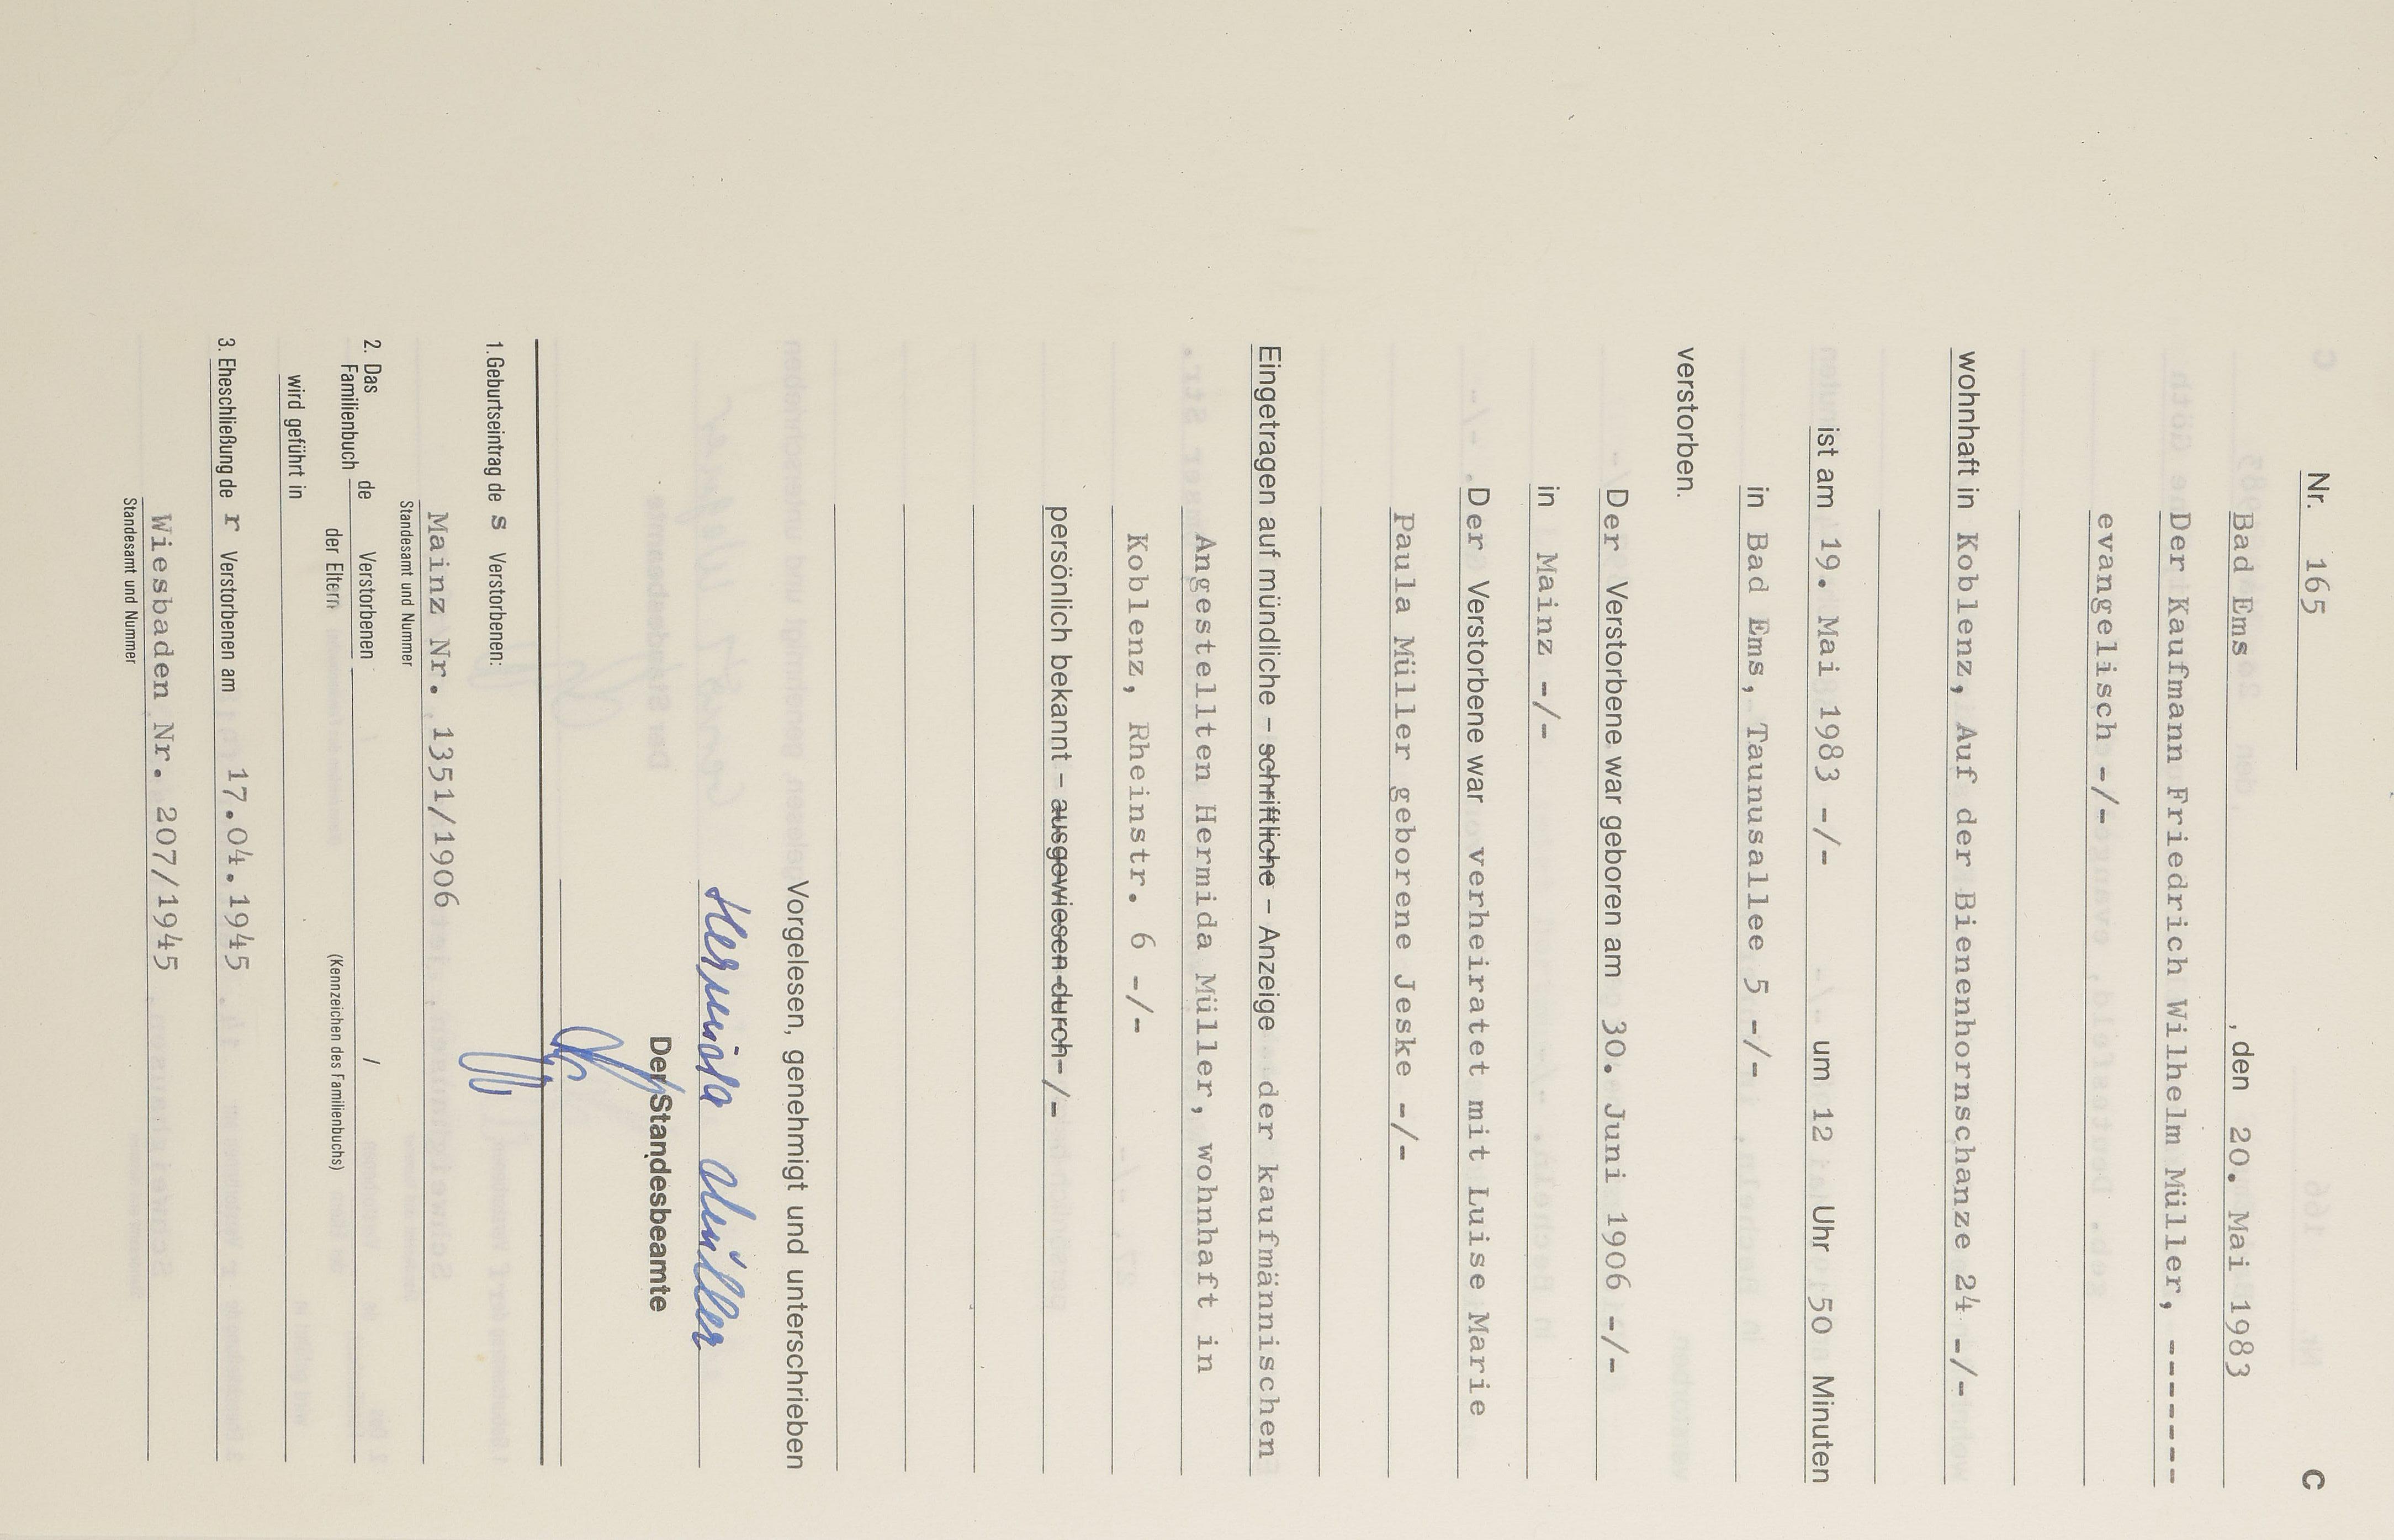 Nr. 165 C
Bad Ems, den 20. Mai 1983
Der Kaufmann Friedrich Wilhelm Müller, -------
evangelisch -/-
wohnhaft in Koblenz, Auf der Bienenhornschanze 24 -/-
ist am 19. Mai 1983 -/- um 12 Uhr 50 Minuten
in Bad Ems, Taunusallee 5 -/-
verstorben.
Der Verstorbene war geboren am 30. Juni 1906 -/-
in Mainz -/-
Der Verstorbene war verheiratet mit Luise Marie
Paula Müller geborene Jeske -/-
Eingetragen auf mündliche – schriftliche – Anzeige der kaufmännischen
Angestellten Hermida Müller, wohnhaft in
Koblenz, Rheinstr. 6 -/-
persönlich bekannt – ausgewiesen durch -/-
Vorgelesen, genehmigt und unterschrieben
Hermida Müller
Der Standesbeamte
1. Geburtseintrag des Verstorbenen:
Mainz Nr. 1351/1906
Standesamt und Nummer
2. Das Familienbuch de Verstorbenen / der Eltern
(Kennzeichen des Familienbuchs)
wird geführt in
3. Eheschließung der Verstorbenen am 17.04.1945
Wiesbaden Nr. 207/1945
Standesamt und Nummer